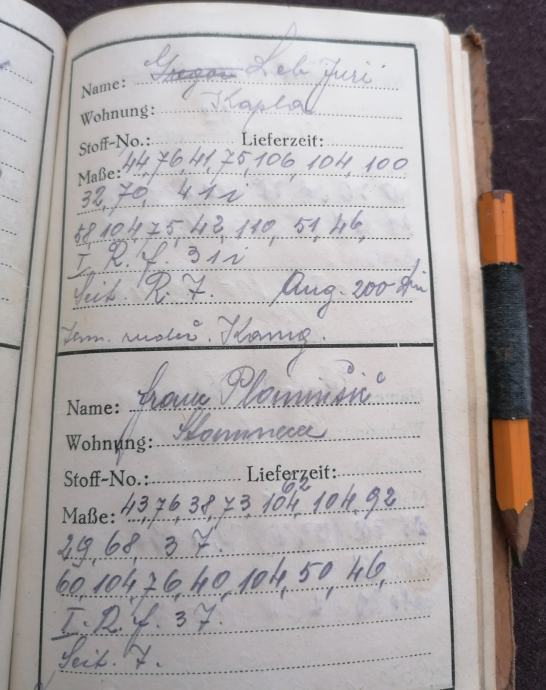 Name: Leb Juri
Wohnung: Kapla
Stoff-No.: Lieferzeit:
Maße: 44, 76, 41, 75, 106, 104, 100
32, 70, 4 1 i
58, 104, 75, 42, 110, 51, 46,
I. R. f. 3 1 i
Seit. R. 7. Aug. 200 Din
Kamg.
Name: Franc
Wohnung:
Stoff-No.: Lieferzeit:
62
Maße: 43, 76, 38, 73, 104, 104, 92
29, 68, 3 7.
60, 104, 76, 40, 104, 50, 46,
I. R. f. 3 7.
Seit. 7.